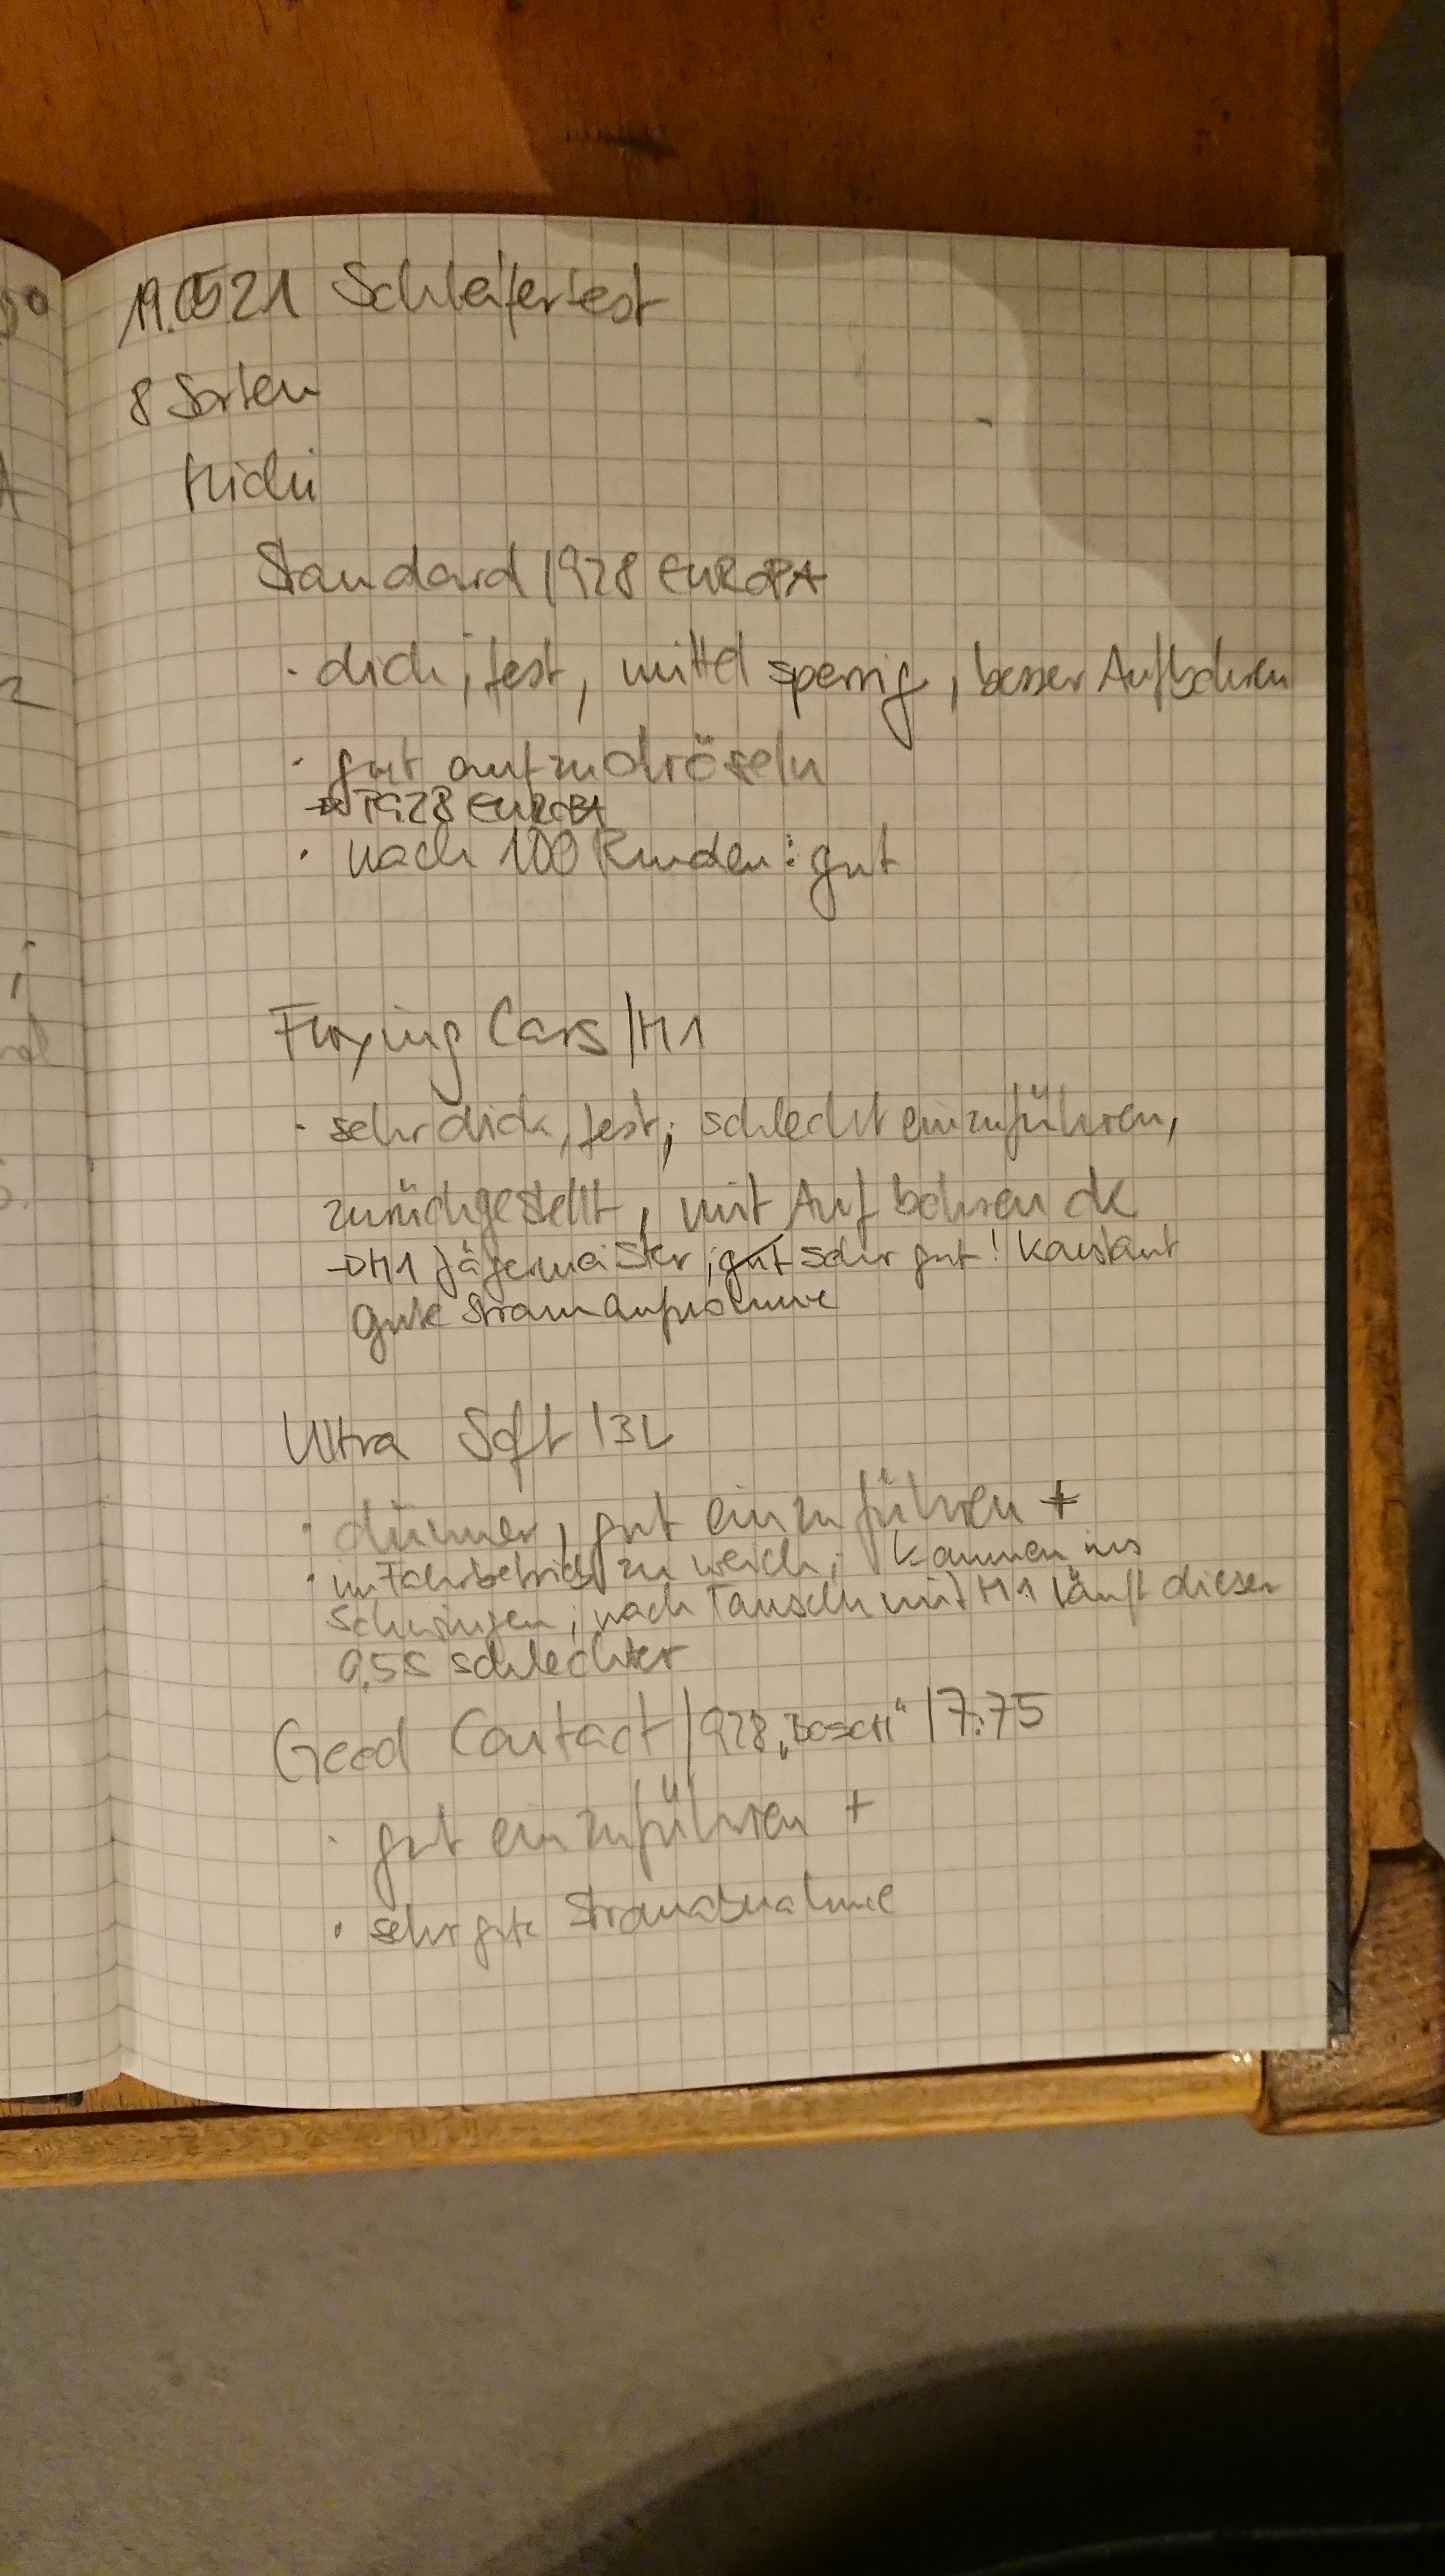 19.05.21 Schleifertest
8 Sorten
Michi
Standard / 928 EUROPA
· dick, fest, mittel sperrig, besser Aufbohren
· gut aufzudröseln
→ 928 EUROPA
· nach 100 Runden: gut
Flexying Cars / M1
· sehr dick, fest, schlecht einzuführen,
zurückgestellt, mit Aufbohren ok
→ M1 Jägermeister, gut sehr gut! Konstant
gute Stromaufnahme
Ultra Soft / 3L
· dünner, gut einzuführen +
· im Fahrbetrieb zu weich, kommen ins
Schwingen; nach Tausch mit M1 läuft dieser
0,5s schlechter
Good Contact / 928 „Boseti“ / 7:75
· gut einzuführen +
· sehr gute Stromabnahme